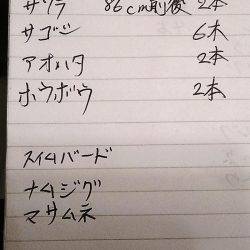 サワラ 86cm前後 2本
サゴシ 6本
アオハタ 2本
ホウボウ 2本
スイムバード
ナムジグ
マサムネ